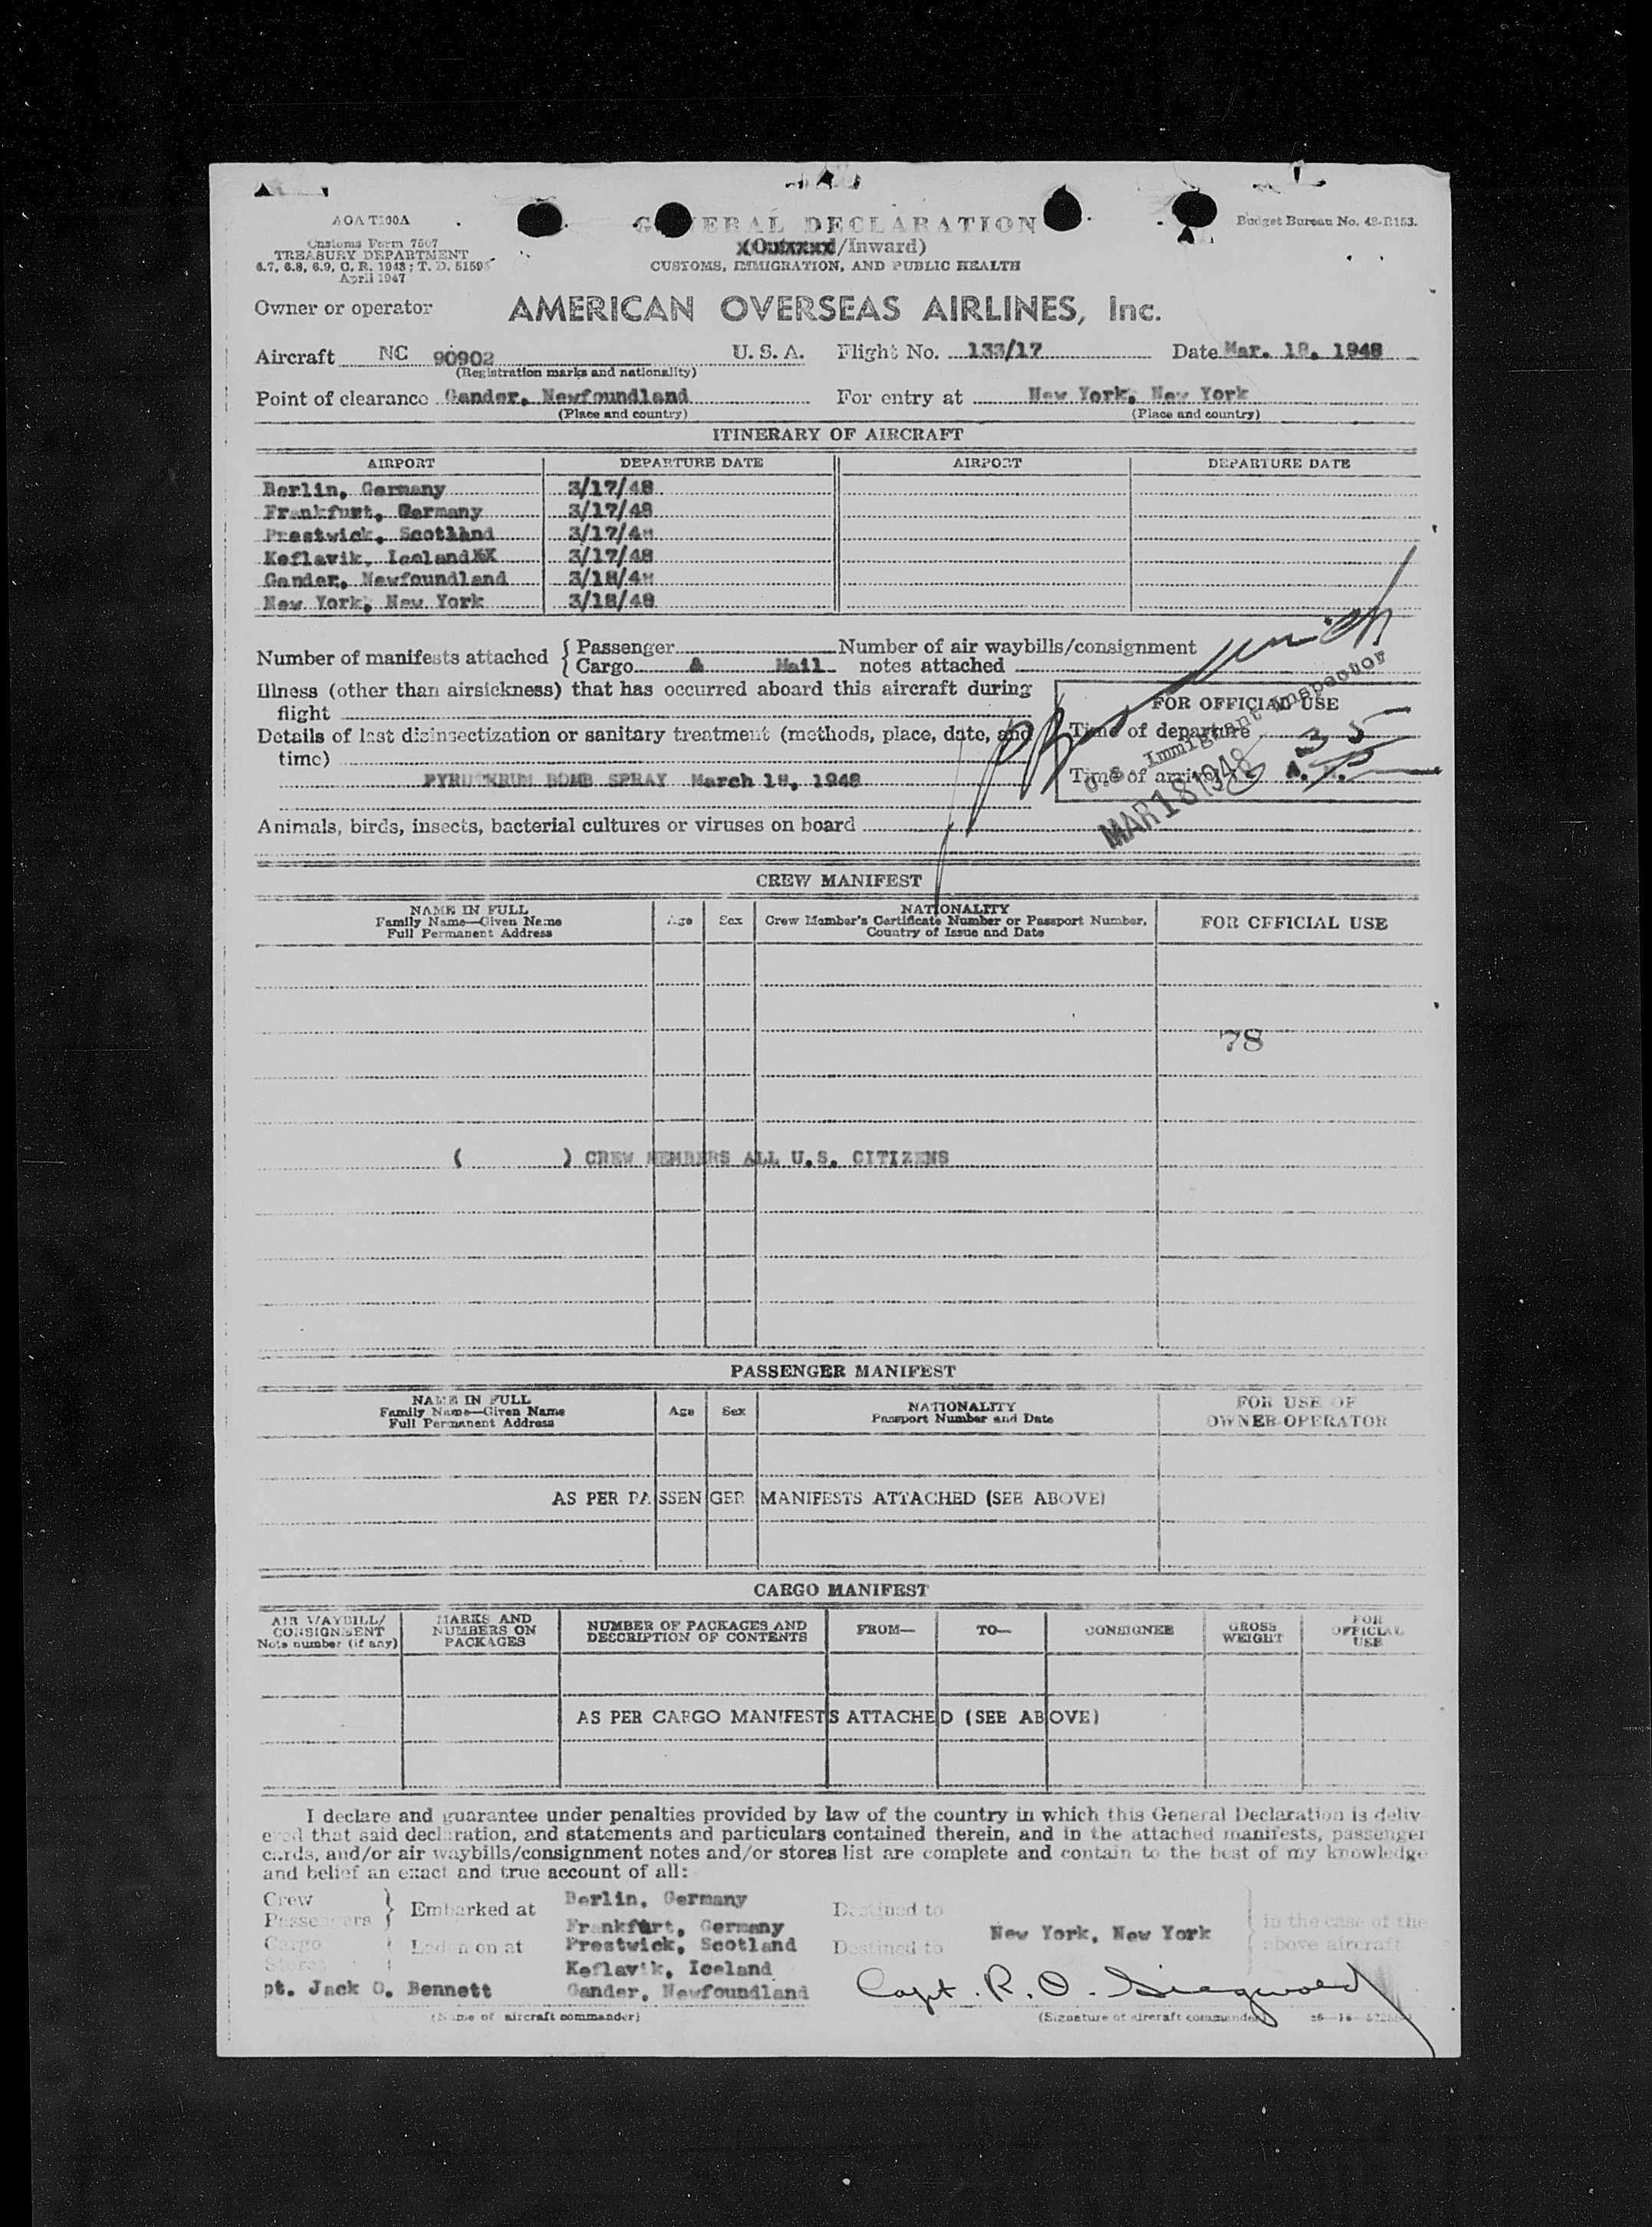 AOA T100A
Customs Form 7507
TREASURY DEPARTMENT
6.7, 6.8, 6.9, C. R. 1943; T. D. 51595
April 1947
GENERAL DECLARATION
(Outxxxx/Inward)
CUSTOMS, IMMIGRATION, AND PUBLIC HEALTH
Budget Bureau No. 43-R153.
Owner or operator AMERICAN OVERSEAS AIRLINES, Inc.
Aircraft NC 90902 U. S. A. Flight No. 133/17 Date Mar. 18, 1948
(Registration marks and nationality)
Point of clearance Gander, Newfoundland For entry at New York, New York
(Place and country) (Place and country)
ITINERARY OF AIRCRAFT
AIRPORT DEPARTURE DATE AIRPORT DEPARTURE DATE
Berlin, Germany 3/17/48
Frankfurt, Germany 3/17/48
Prestwick, Scotland 3/17/48
Keflavik, Iceland 3/17/48
Gander, Newfoundland 3/18/48
New York, New York 3/18/48
Number of manifests attached { Passenger Number of air waybills/consignment
Cargo & Mail notes attached
Illness (other than airsickness) that has occurred aboard this aircraft during
flight
FOR OFFICIAL USE
Details of last disinsectization or sanitary treatment (methods, place, date, and
time)
PYRUTKRUM BOMB SPRAY March 18, 1948
Time of departure
Time of arrival
U.S. Immigrant Inspector
MAR 18 1948
Animals, birds, insects, bacterial cultures or viruses on board
CREW MANIFEST
NAME IN FULL
Family Name—Given Name
Full Permanent Address
Age Sex
NATIONALITY
Crew Member's Certificate Number or Passport Number,
Country of Issue and Date
FOR OFFICIAL USE
78
( ) CREW MEMBERS ALL U.S. CITIZENS
PASSENGER MANIFEST
NAME IN FULL
Family Name—Given Name
Full Permanent Address
Age Sex
NATIONALITY
Passport Number and Date
FOR USE OF
OWNER-OPERATOR
AS PER PASSENGER MANIFESTS ATTACHED (SEE ABOVE)
CARGO MANIFEST
AIR WAYBILL/
CONSIGNMENT
Note number (if any)
MARKS AND
NUMBERS ON
PACKAGES
NUMBER OF PACKAGES AND
DESCRIPTION OF CONTENTS
FROM— TO— CONSIGNEE
GROSS
WEIGHT
FOR
OFFICIAL
USE
AS PER CARGO MANIFESTS ATTACHED (SEE ABOVE)
I declare and guarantee under penalties provided by law of the country in which this General Declaration is deliv-
ered that said declaration, and statements and particulars contained therein, and in the attached manifests, passenger
cards, and/or air waybills/consignment notes and/or stores list are complete and contain to the best of my knowledge
and belief an exact and true account of all:
Crew
Passengers } Embarked at Berlin, Germany Destined to
Frankfurt, Germany
New York, New York
Cargo
Stores } Laden on at Prestwick, Scotland Destined to
in the case of the
above aircraft
Keflavik, Iceland
pt. Jack O. Bennett Gander, Newfoundland Capt. R. O. Siegwold
(Name of aircraft commander) (Signature of aircraft commander)